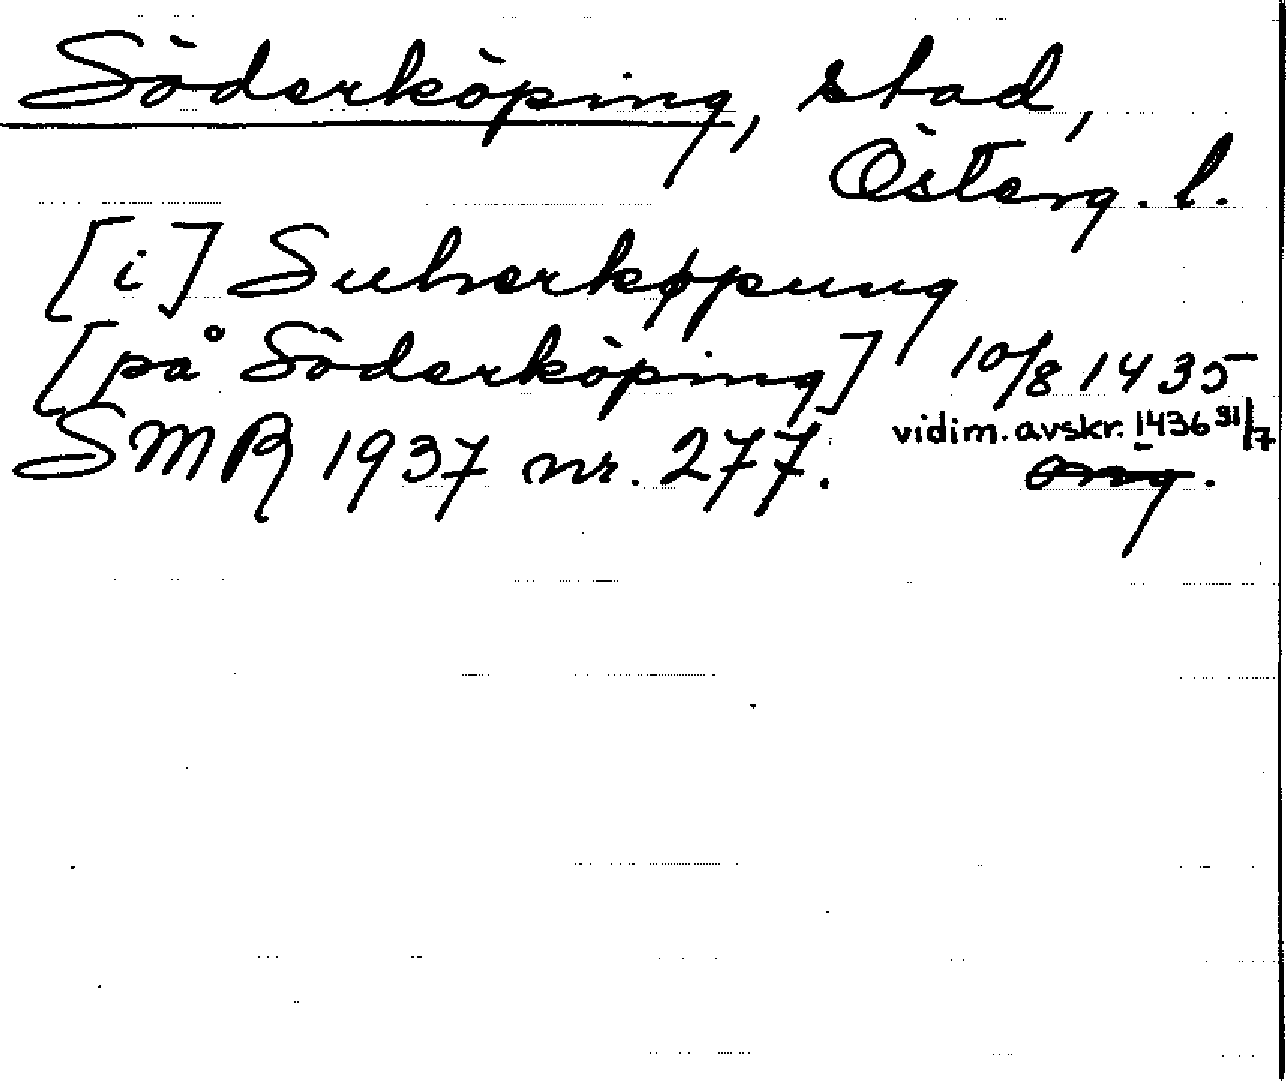 Söderköping, stad,
Österg. l.
[i] Suherkøpung
[på Söderköping] 10/8 1435
vidim. avskr. 1436 31/7
SMR 1937 nr. 277. Ong.